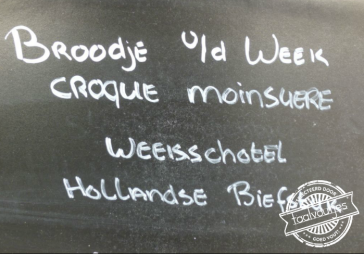 Broodje v/d Week
CROQUE moinsuere
Weeisschotel
Hollandse Biefstyk
taalvoutjes